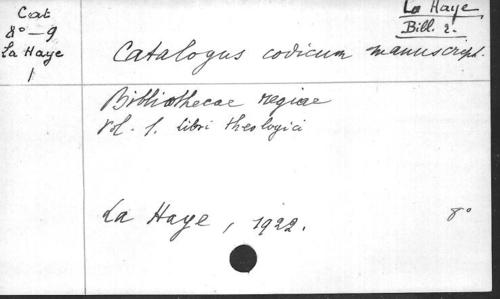 Cat
8° - 9
La Haye
1
La Haye
Bill. 2.
Catalogus codicum manuscript.
Bibliothecae regiae
Vol. 1. Libri theologici
La Haye, 1922.
8°